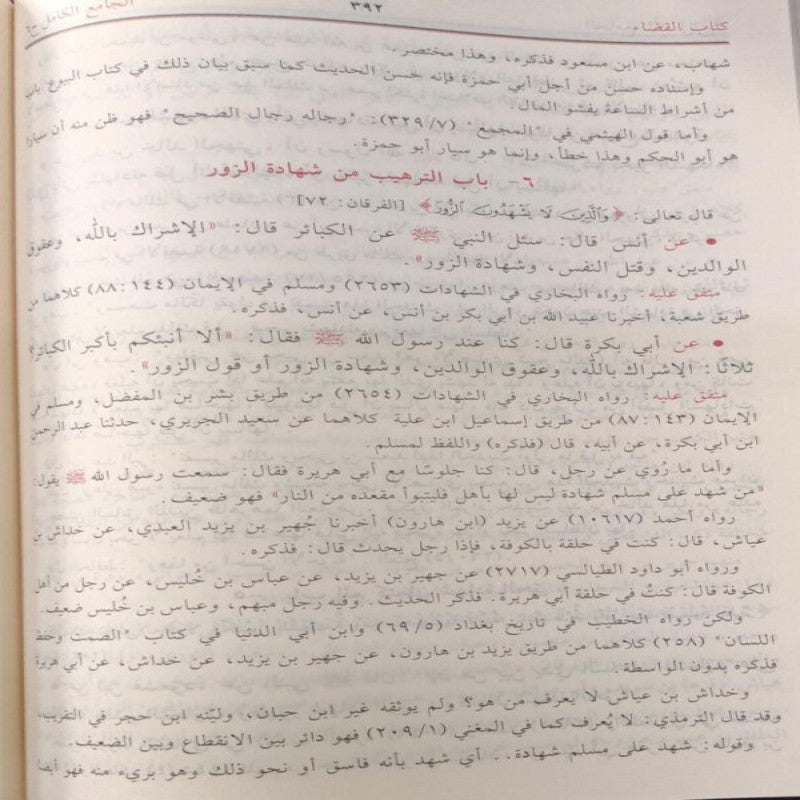 كتاب القضاء
٣٩٢
الجامع الكامل ج٦
شهاب، عن ابن مسعود فذكره، وهذا مختصر.
وإسناده حسن من أجل أبي حمزة فإنه حسن الحديث كما سبق بيان ذلك في كتاب البيوع باب
من أشراط الساعة يفشو المال.
وأما قول الهيثمي في "المجمع" (٣٢٩/٧): "رجاله رجال الصحيح" فهو ظن منه أن سيارا
هو أبو الحكم وهذا خطأ، وإنما هو سيار أبو حمزة.
٦- باب الترهيب من شهادة الزور
قال تعالى: ﴿وَالَّذِينَ لَا يَشْهَدُونَ الزُّورَ﴾ [الفرقان: ٧٢]
• عن أنس قال: سئل النبي ﷺ عن الكبائر قال: «الإشراك بالله، وعقوق
الوالدين، وقتل النفس، وشهادة الزور».
متفق عليه: رواه البخاري في الشهادات (٢٦٥٣) ومسلم في الإيمان (١٤٤: ٨٨) كلاهما من
طريق شعبة، أخبرنا عبيد الله بن أبي بكر بن أنس، عن أنس، فذكره.
• عن أبي بكرة قال: كنا عند رسول الله ﷺ فقال: «ألا أنبئكم بأكبر الكبائر؟
ثلاثًا: الإشراك بالله، وعقوق الوالدين، وشهادة الزور أو قول الزور».
متفق عليه: رواه البخاري في الشهادات (٢٦٥٤) من طريق بشر بن المفضل، ومسلم في
الإيمان (١٤٣: ٨٧) من طريق إسماعيل ابن علية كلاهما عن سعيد الجريري، حدثنا عبد الرحمن
ابن أبي بكرة، عن أبيه، قال (فذكره) واللفظ لمسلم.
وأما ما رُوي عن رجل، قال: كنا جلوسًا مع أبي هريرة فقال: سمعت رسول الله ﷺ يقول:
"من شهد على مسلم شهادة ليس لها بأهل فليتبوأ مقعده من النار" فهو ضعيف.
رواه أحمد (١٠٦١٧) عن يزيد (ابن هارون) أخبرنا جُهير بن يزيد العبدي، عن خداش بن
عياش، قال: كنت في حلقة بالكوفة، فإذا رجل يحدث قال: فذكره.
ورواه أبو داود الطيالسي (٢٧١٧) عن جهير بن يزيد، عن عباس بن خُليس، عن رجل من أهل
الكوفة قال: كنتُ في حلقة أبي هريرة. فذكر الحديث. وفيه رجل مبهم، وعباس بن خُليس ضعيف.
ولكن رواه الخطيب في تاريخ بغداد (٦٩/٥) وابن أبي الدنيا في كتاب "الصمت وحفظ
اللسان" (٢٥٨) كلاهما من طريق يزيد بن هارون، عن جهير بن يزيد، عن خداش، عن أبي هريرة
فذكره بدون الواسطة.
وخداش بن عياش لا يعرف من هو؟ ولم يوثقه غير ابن حبان، وليّنه ابن حجر في التقريب،
وقد قال الترمذي: لا يُعرف كما في المغني (٢٠٩/١) فهو دائر بين الانقطاع وبين الضعيف.
وقوله: شهد على مسلم شهادة.. أي شهد بأنه فاسق أو نحو ذلك وهو بريء منه فهو أيضا